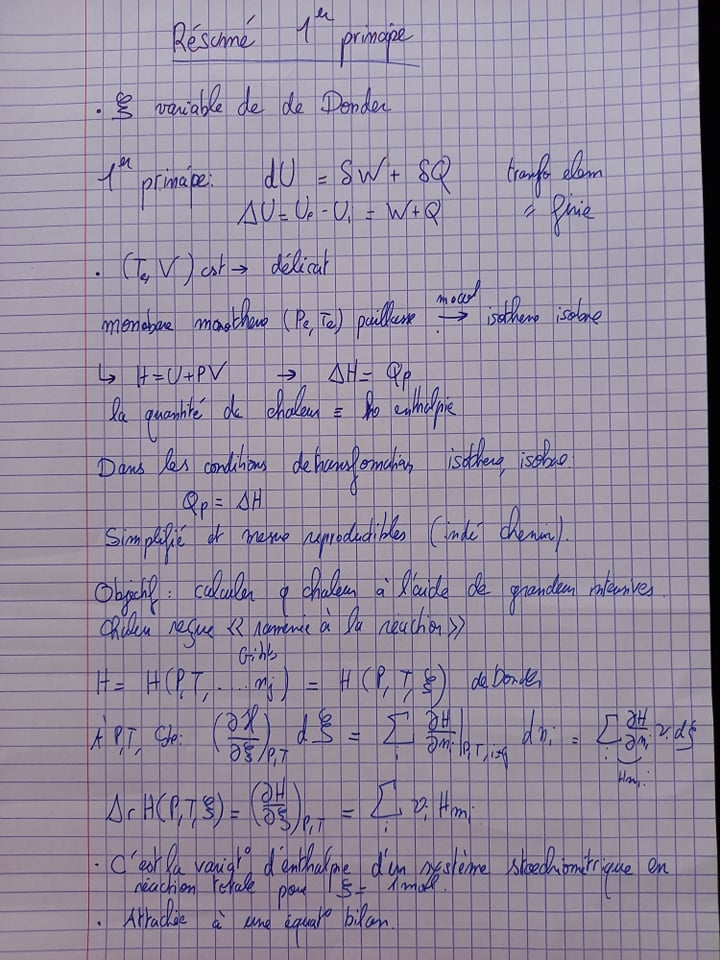 Résumé 1er principe
· ξ variable de de Donder
1er principe: dU = δW + δQ transfo elem
ΔU = Uf - Ui = W+Q " finie
· (T, V) cst → délicat
monobare monotherme (Pe, Te) paillasse → model isotherme isobare
↳ H=U+PV → ΔH = Qp
la quantité de chaleur = enthalpie
Dans les conditions de transformation isotherme, isobare:
Qp = ΔH
Simplifié et mesure reproductibles (indé chemin).
Objectif: calculer q chaleur à l'aide de grandeur intensives.
Chaleur reçue << ramenée à la réaction >>
Gibbs
H = H(P,T, .... nj) = H(P, T, ξ) de Donder
À P,T, Cte: (∂H/∂ξ)P,T dξ = Σi ∂H/∂ni|P,T,i≠j dni = Σi ∂H/∂ni νi dξ
Hmi
ΔrH(P,T,ξ) = (∂H/∂ξ)P,T = Σi νi Hmi
· C'est la variat° d'enthalpie d'un système stoechiométrique en
réaction totale pour ξ = 1 mol.
· Attachée à une équat° bilan.